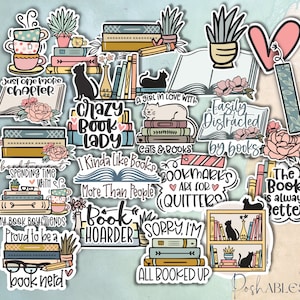 just one more
chapter
Crazy
Book
LADY
a girl in love with
cats & books
Easily
Distracted
by books
I Kinda Like Books
More Than People
SPENDING TIME
WITH
MY BOOK BOYFRIENDS
BOOKMARKS
ARE FOR
QUITTERS
The
Book
is always
Better
Book
HOARDER
SORRY I'M
ALL BOOKED UP
Proud to be a
book nerd
POSHABLES